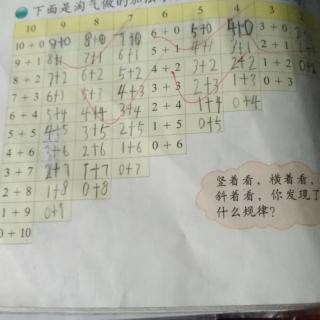 下面是淘气做的加法
10 9 8 7 6 5 4 3 2
10+0 9+0 8+0 7+0 6+0 5+0 4+0 3+0
9+1 8+1 7+1 6+1 5+1 4+1 3+1 2+1
8+2 7+2 6+2 5+2 4+2 3+2 2+2 1+2
7+3 6+3 5+3 4+3 3+3 2+3 1+3 0+3
6+4 5+4 4+4 3+4 2+4 1+4 0+4
5+5 4+5 3+5 2+5 1+5 0+5
4+6 3+6 2+6 1+6 0+6
3+7 2+7 1+7 0+7
2+8 1+8 0+8
1+9 0+9
0+10
竖着看，横着看，
斜着看，你发现了
什么规律？